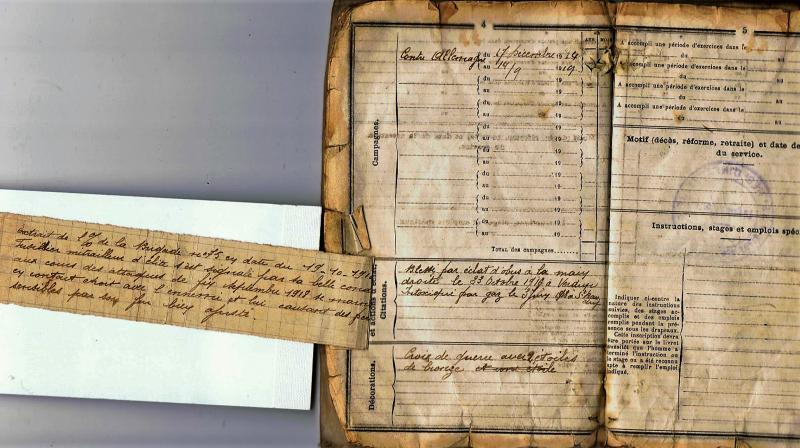 4
5
Campagnes.
Contre l'Allemagne
du 17 Décembre 1914
au 14/9 1919
du 19
au 19
du 19
au 19
du 19
au 19
du 19
au 19
du 19
au 19
du 19
au 19
TOTAL des campagnes
et actions d'éclat. Citations.
Blessé par éclat d'obus à la main
droite le 23 Octobre 1916 à Verdun
Intoxiqué par gaz le 3 juin
Décorations.
Croix de guerre avec étoiles
de bronze et une étoile
Extrait de de la Brigade n° 75 en date du 19.10.191
Fusilier mitrailleur d'élite s'est signalé par sa belle
aux cours des attaques de fin septembre 1918 se
en contact étroit avec l'ennemi et lui causant des
sensibles par son feu bien ajusté.
A accompli une période d'exercices dans le
du au
A accompli une période d'exercices dans le
du au
A accompli une période d'exercices dans le
du au
A accompli une période d'exercices dans le
du au
Motif (décès, réforme, retraite) et date de
du service.
Instructions, stages et emplois spé
Indiquer ci-contre la
nature des instructions
suivies, des stages ac-
complis et des emplois
remplis pendant la pré-
sence sous les drapeaux.
Cette inscription devra
être portée sur le livret
aussitôt que l'homme a
terminé l'instruction ou
le stage ou a été reconnu
apte à remplir l'emploi
indiqué.